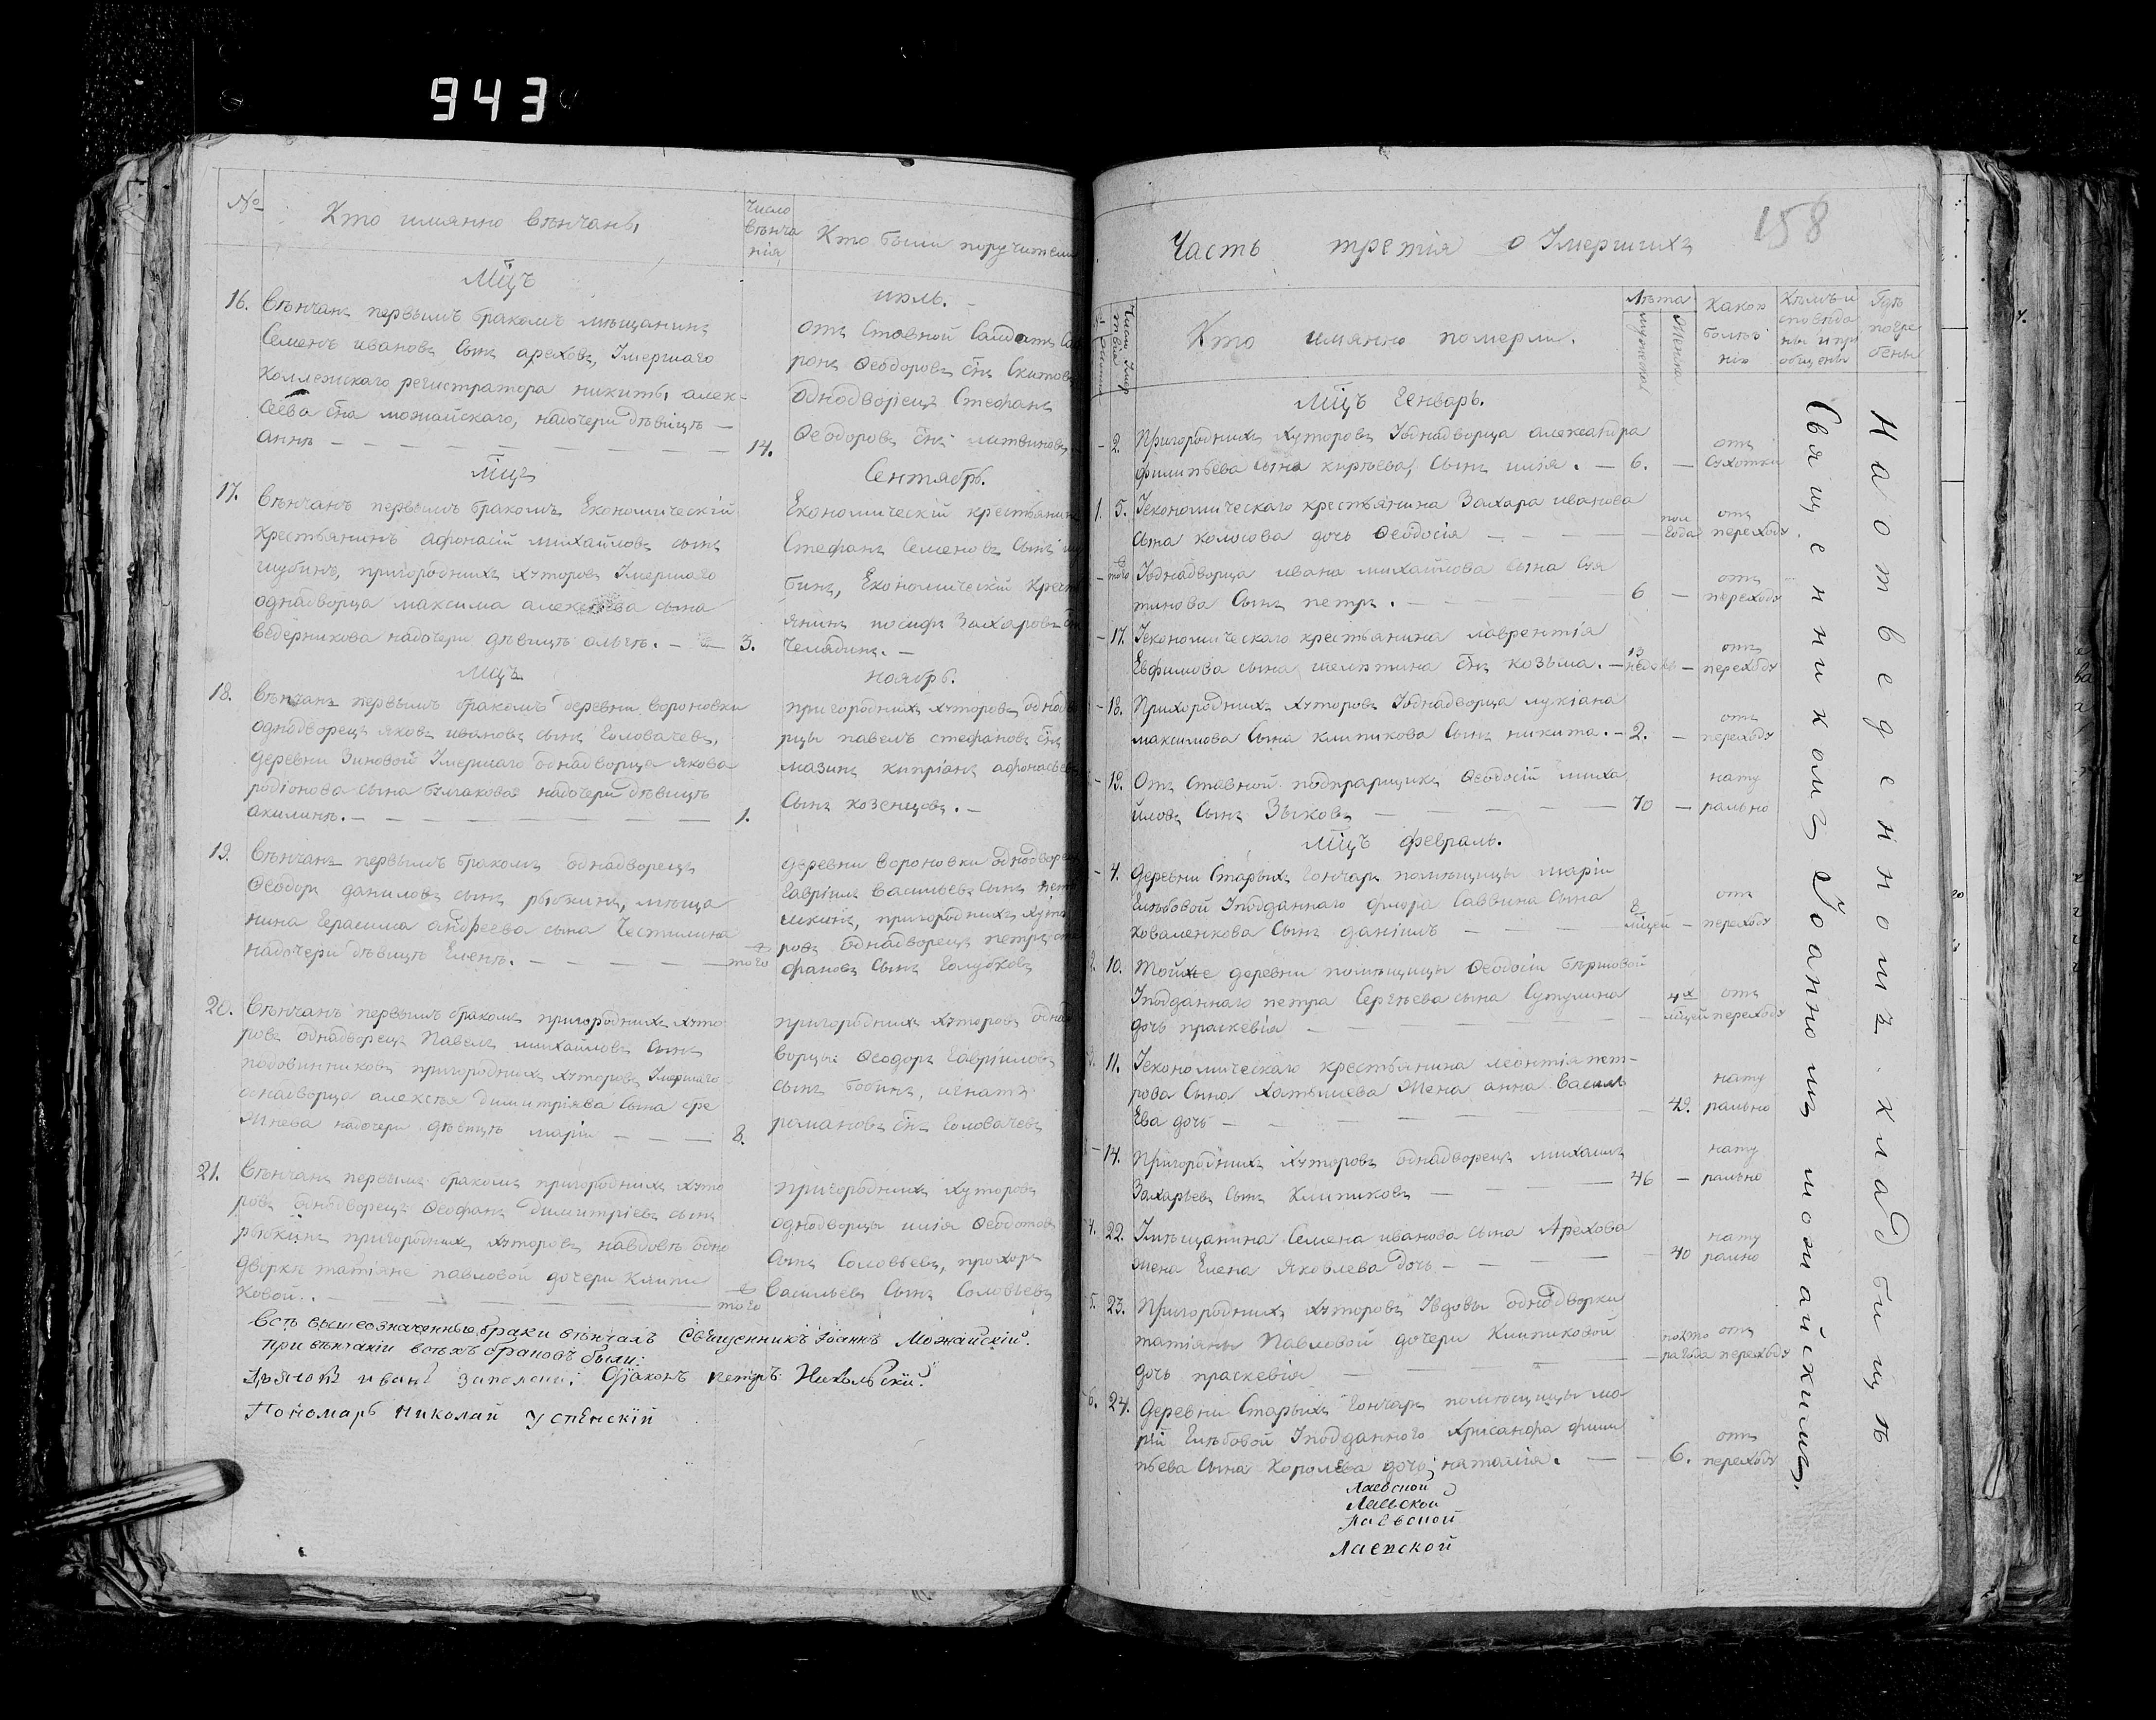 943
№
Кто имянно вѣнчаны
Число вѣнча нія
Кто были поручители
Мцъ
июль.
16. Вѣнчанъ первымъ бракомъ мѣщанинъ
Семенъ ивановъ сынъ ареховъ, Умершаго
Коллежскаго регистратора никиты алек-
сеева сна можайскаго, надочери дѣвицѣ
аннѣ 14.
отъ Ставной Салдатъ
ронъ Ѳеодоровъ снъ Скитовъ
Однодворецъ Стефанъ
Ѳеодоровъ снъ литвиновъ
Мцъ
Сентябрь.
17. Вѣнчанъ первымъ бракомъ Економическій
крестьянинъ афонасій михайловъ сынъ
шубинъ, пригородныхъ хуторовъ Умершаго
однадворца максима алексеева сына
ведерникова надочери дѣвицѣ ольгѣ. 3.
Економическій крестьянинъ
Стефанъ Семеновъ сынъ
бинъ, Економическій крест
янинъ иосифъ Захаровъ
Челядинъ.
Мцъ
ноябрь.
18. Вѣнчанъ первымъ бракомъ деревни вороновки
однодворецъ яковъ ивановъ сынъ Головачевъ,
деревни Зиновой Умершаго однадворца якова
родіонова сына булгакова надочери дѣвицѣ
акилинѣ. 1.
пригородныхъ хуторовъ однадво
рцы павелъ стефановъ снъ
мазинъ кипріанъ афонасьевъ
Сынъ козенцовъ.
19. Вѣнчанъ первымъ бракомъ однадворецъ
Ѳеодоръ даниловъ сынъ рыбкинъ, мѣща
нина Герасима андреева сына Честилина
надочери дѣвицѣ Еленѣ. того
деревни вороновки однодворецъ
Гавріилъ Васильевъ сынъ
шкинъ, пригородныхъ хуто
ровъ однадворецъ петръ сте
фановъ сынъ Голубковъ
20. Вѣнчанъ первымъ бракомъ пригородныхъ хуто
ровъ однадворецъ Павелъ михайловъ сынъ
половинниковъ пригородныхъ хуторовъ Умершаго
однадворца алексѣя димитріева сына бре
жнева надочери дѣвицѣ маріи 8.
пригородныхъ хуторовъ однад
ворцы Ѳеодоръ Гавриловъ
сынъ бобинъ, игнатъ
романовъ снъ Головачевъ
21. Вѣнчанъ первымъ бракомъ пригородныхъ хуто
ровъ однодворецъ Ѳеофанъ димитріевъ сынъ
рыбкинъ пригородныхъ хуторовъ навдовѣ одно
дворкѣ татіане павловой дочери клипи
ковой. того
пригородныхъ хуторовъ
однодворцы илія Ѳеодотовъ
сынъ Соловьевъ, прохоръ
Васильевъ сынъ Соловьевъ
Всѣ вышеозначенные браки вѣнчалъ Священникъ Іоаннъ Можайскій.
При вѣнчаніи всѣхъ браковъ были:
Дьячокъ иванъ Діаконъ петръ Никольскій
Пономарь николай успенскій
158
Часть третія о Умершихъ
Число Умертвія
Кто имянно померли.
Лѣта
мужеска
Женска
Какою болѣз нію
Кѣмъ и сповѣда ны и при общены
Гдѣ погре бены
Мцъ Генварь.
2. Пригородныхъ хуторовъ Уоднадворца александра
филипьева сына кирѣева, сынъ илія. 6. отъ сухотки
1. 5. Уекономическаго крестьянина Захара иванова
сына колосова дочь Ѳеодосія пол года отъ переходу
того Уоднадворца ивана михайлова сына
тинова сынъ петръ. 6 отъ переходу
17. Уекономическаго крестьянина лаврентія
Евфимова сына шелѣтина снъ козьма. 13 недель отъ переходу
18. Пригородныхъ хуторовъ Уоднадворца лукіана
максимова сына клипикова сынъ никита. 2. отъ переходу
19. Отъ Ставной подпрапорщикъ Ѳеодосій миха
иловъ сынъ Зыковъ 70 нату рально
Мцъ февраль.
4. деревни Старыхъ Гончаръ помѣщицы маріи
Глѣбовой Уподданнаго флора Саввина сына
коваленкова сынъ даніилъ 8 мцей отъ переходу
2. 10. Тойже деревни помѣщицы Ѳеодосіи
Уподданнаго петра Сергѣева сына Сутулина
дочь праскевія 4х мцей отъ переходу
3. 11. Уекономическаго крестьянина леонтія пет-
рова сына Хатьлиева жена анна Василь
Ева дочь 49. нату рально
14. Пригородныхъ хуторовъ однадворецъ михаилъ
Захарьевъ сынъ Клипиковъ 46 нату рально
4. 22. Умѣщанина Семена иванова сына Арехова
жена Елена Яковлева дочь 40 нату рално
5. 23. Пригородныхъ хуторовъ Увдовы однодворки
татіаны Павловой дочери Клипиковой
дочь праскевія полто ра года отъ переходу
6. 24. деревни Старыхъ Гончаръ помѣщицы ма
ріи Глѣбовой Уподданного Хрисанфа фили
пьева сына Королева дочь наталія. 6. отъ переходу
Лаевской
Лаевской
Лаевской
Лаевской
Священникомъ Іоанномъ можайскимъ,
На отведенномъ кладбищѣ